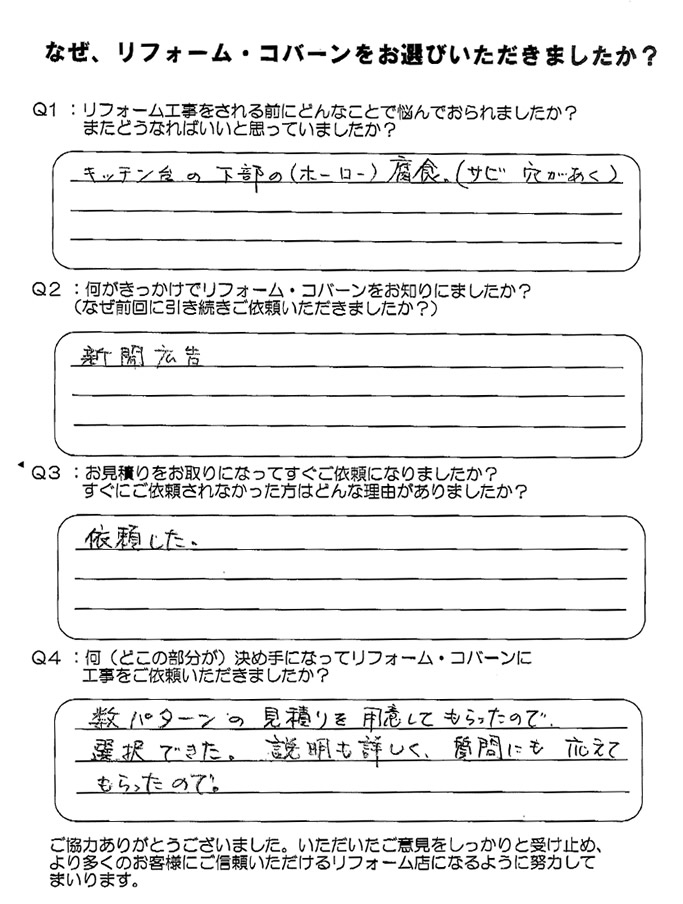 なぜ、リフォーム・コバーンをお選びいただきましたか？
Q1：リフォーム工事をされる前にどんなことで悩んでおられましたか？
またどうなればいいと思っていましたか？
キッチン台の下部の(ホーロー)腐食。(サビ 穴があく)
Q2：何がきっかけでリフォーム・コバーンをお知りにましたか？
（なぜ前回に引き続きご依頼いただきましたか？）
新聞広告
Q3：お見積りをお取りになってすぐご依頼になりましたか？
すぐにご依頼されなかった方はどんな理由がありましたか？
依頼した。
Q4：何（どこの部分が）決め手になってリフォーム・コバーンに
工事をご依頼いただきましたか？
数パターンの見積りを用意してもらったので、
選択できた。説明も詳しく、質問にも応えて
もらったので。
ご協力ありがとうございました。いただいたご意見をしっかりと受け止め、
より多くのお客様にご信頼いただけるリフォーム店になるように努力して
まいります。